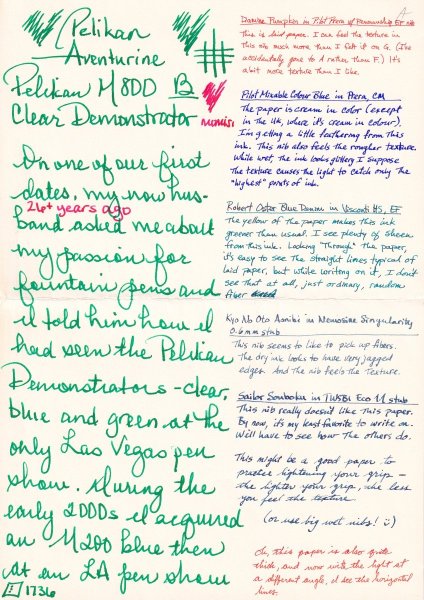 Pelikan
Aventurine
Pelikan M800 B
Clear Demonstrator
On one of our first
dates, my now hus-
26+ years ago
band asked me about
my passion for
fountain pens and
I told him how I
had seen the Pelikan
Demonstrators - clear,
blue and green at the
only Las Vegas pen
show. During the
early 2000s I acquired
an M200 blue then
at an LA pen show
1736
A
Damine Pumpkin in Pilot Prera of Penmanship EF nib
This is laid paper. I can feel the texture in
this nib much more than I felt it on G. (I've
accidentally gone to A rather than F.) It's
a bit more texture than I like.
Pilot Mixable Colour Blue in Prera, CM
The paper is cream in color (except
in the UK, where it's cream in colour).
I'm getting a little feathering from this
ink. This nib also feels the rougher texture.
While wet, the ink looks glittery I suppose
the texture causes the light to catch only the
"highest" points of ink.
Robert Oster Blue Denim in Visconti HS, EF
The yellow of the paper makes this ink
greener than usual. I see plenty of sheen
from this ink. Looking "through" the paper,
it's easy to see the straight lines typical of
laid paper, but while writing on it, I don't
see that at all, just ordinary, random
fiber
Kyo No Oto Aonibi in Nemosine Singularity
0.6mm stub
This nib seems to like to pick up fibers.
The dry ink looks to have very jagged
edges. And the nib feels the texture.
Sailor Souboku in TWSBI Eco 1.1 stub
This nib really doesn't like this paper.
By now, it's my least favorite to write on.
Will have to see how the others do.
This might be a good paper to
practice lightening your grip -
the lighter your grip, the less
you feel the texture.
(or use big wet nibs! :))
Oh, this paper is also quite
thick, and now with the light at
a different angle, I see the horizontal
lines.